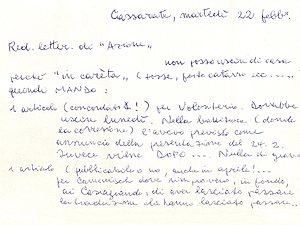 Cassarate, martedì 22 febb.
Red. letter. di "Azione"
non posso uscir di casa
perché "in carèta" ( tosse, forte catarro ecc. ....)
quindi MANDO:
1 articolo (concordato!) per Volonterio. Dovrebbe
uscire lunedì. Nella battitura (dove
la correzione) l'avevo previsto come
annuncio della presentazione del 24.2.
Invece viene DOPO.... Nulla di grave
1 articolo (pubblicatelo o no, anche in aprile!...
per Camenisch dove rimprovero, in fondo,
ai Casagrande, di aver lasciato passare
la traduzione che hanno lasciato passare..